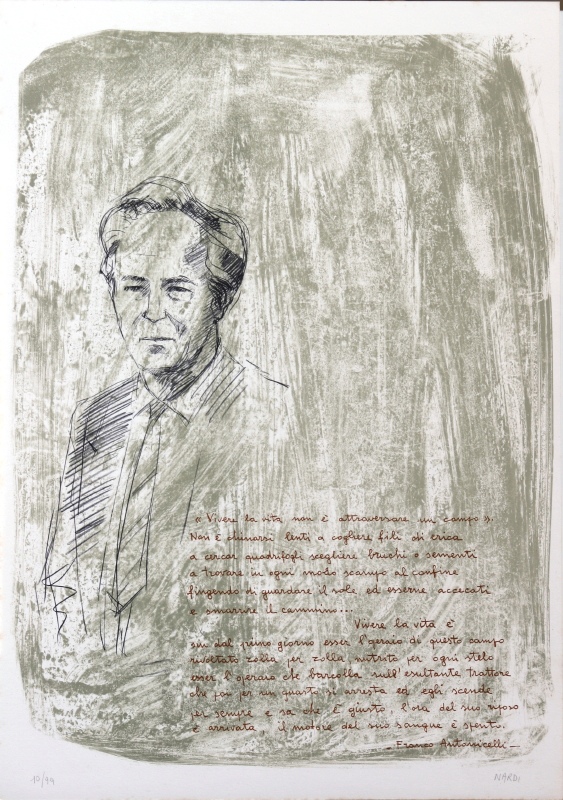 « Vivere la vita non è attraversare un campo ».
Non è chinarsi lenti a cogliere fili di erica
a cercar quadrifogli scegliere bruchi o sementi
a trovare in ogni modo scampo al confine
fingendo di guardare il sole, ed esserne accecati
e smarrire il cammino...
Vivere la vita è
sin dal primo giorno esser l'operaio di questo campo
rivoltato zolla per zolla, nutrito per ogni stelo
esser l'operaio che barcolla sull'esultante trattore
che poi per un guasto si arresta ed egli scende
per sempre e sa che È giusto, l'ora del suo riposo
è arrivata, il motore del suo sangue è spento.
- Franco Antonicelli -
10/99
NARDI